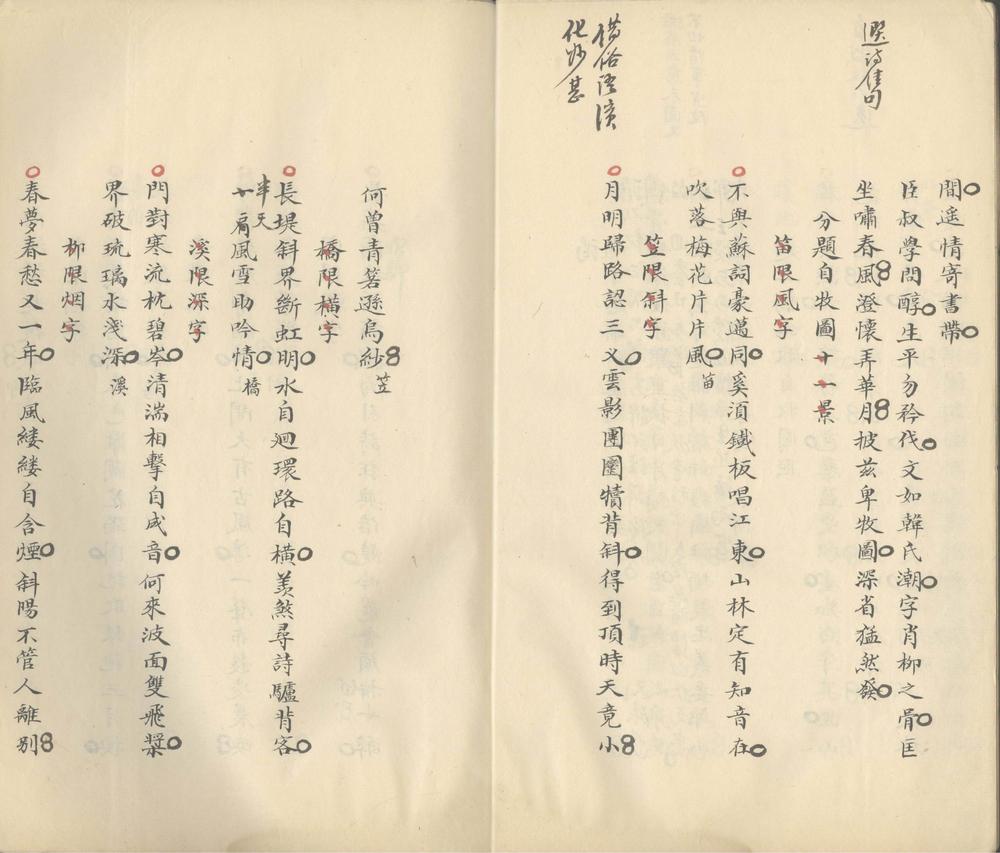 選詩佳句
借俗語演
化妙甚
閒遥情寄書帶
臣叔學問醇生平勿矜伐文如韓氏潮字肖柳之骨匡
坐嘯春風澄懷弄華月披兹卑牧圖深省猛然發
分題自牧圖十一景
笛限風字
不與蘇詞豪邁同奚湏鐵板唱江東山林定有知音在
吹落梅花片片風笛
笠限斜字
月明歸路認三义雲影團團犢背斜得到頂時天竟小
何曾青箬遜烏紗笠
橋限橫字
長堤斜界斷虹明水自廻環路自橫羡煞尋詩驢背客
半天
一肩風雪助吟情橋
溪限深字
門對寒流枕碧岑清湍相擊自成音何來波面雙飛槳
界破琉璃水淺深溪
柳限烟字
春夢春愁又一年臨風縷縷自含煙斜陽不管人離别